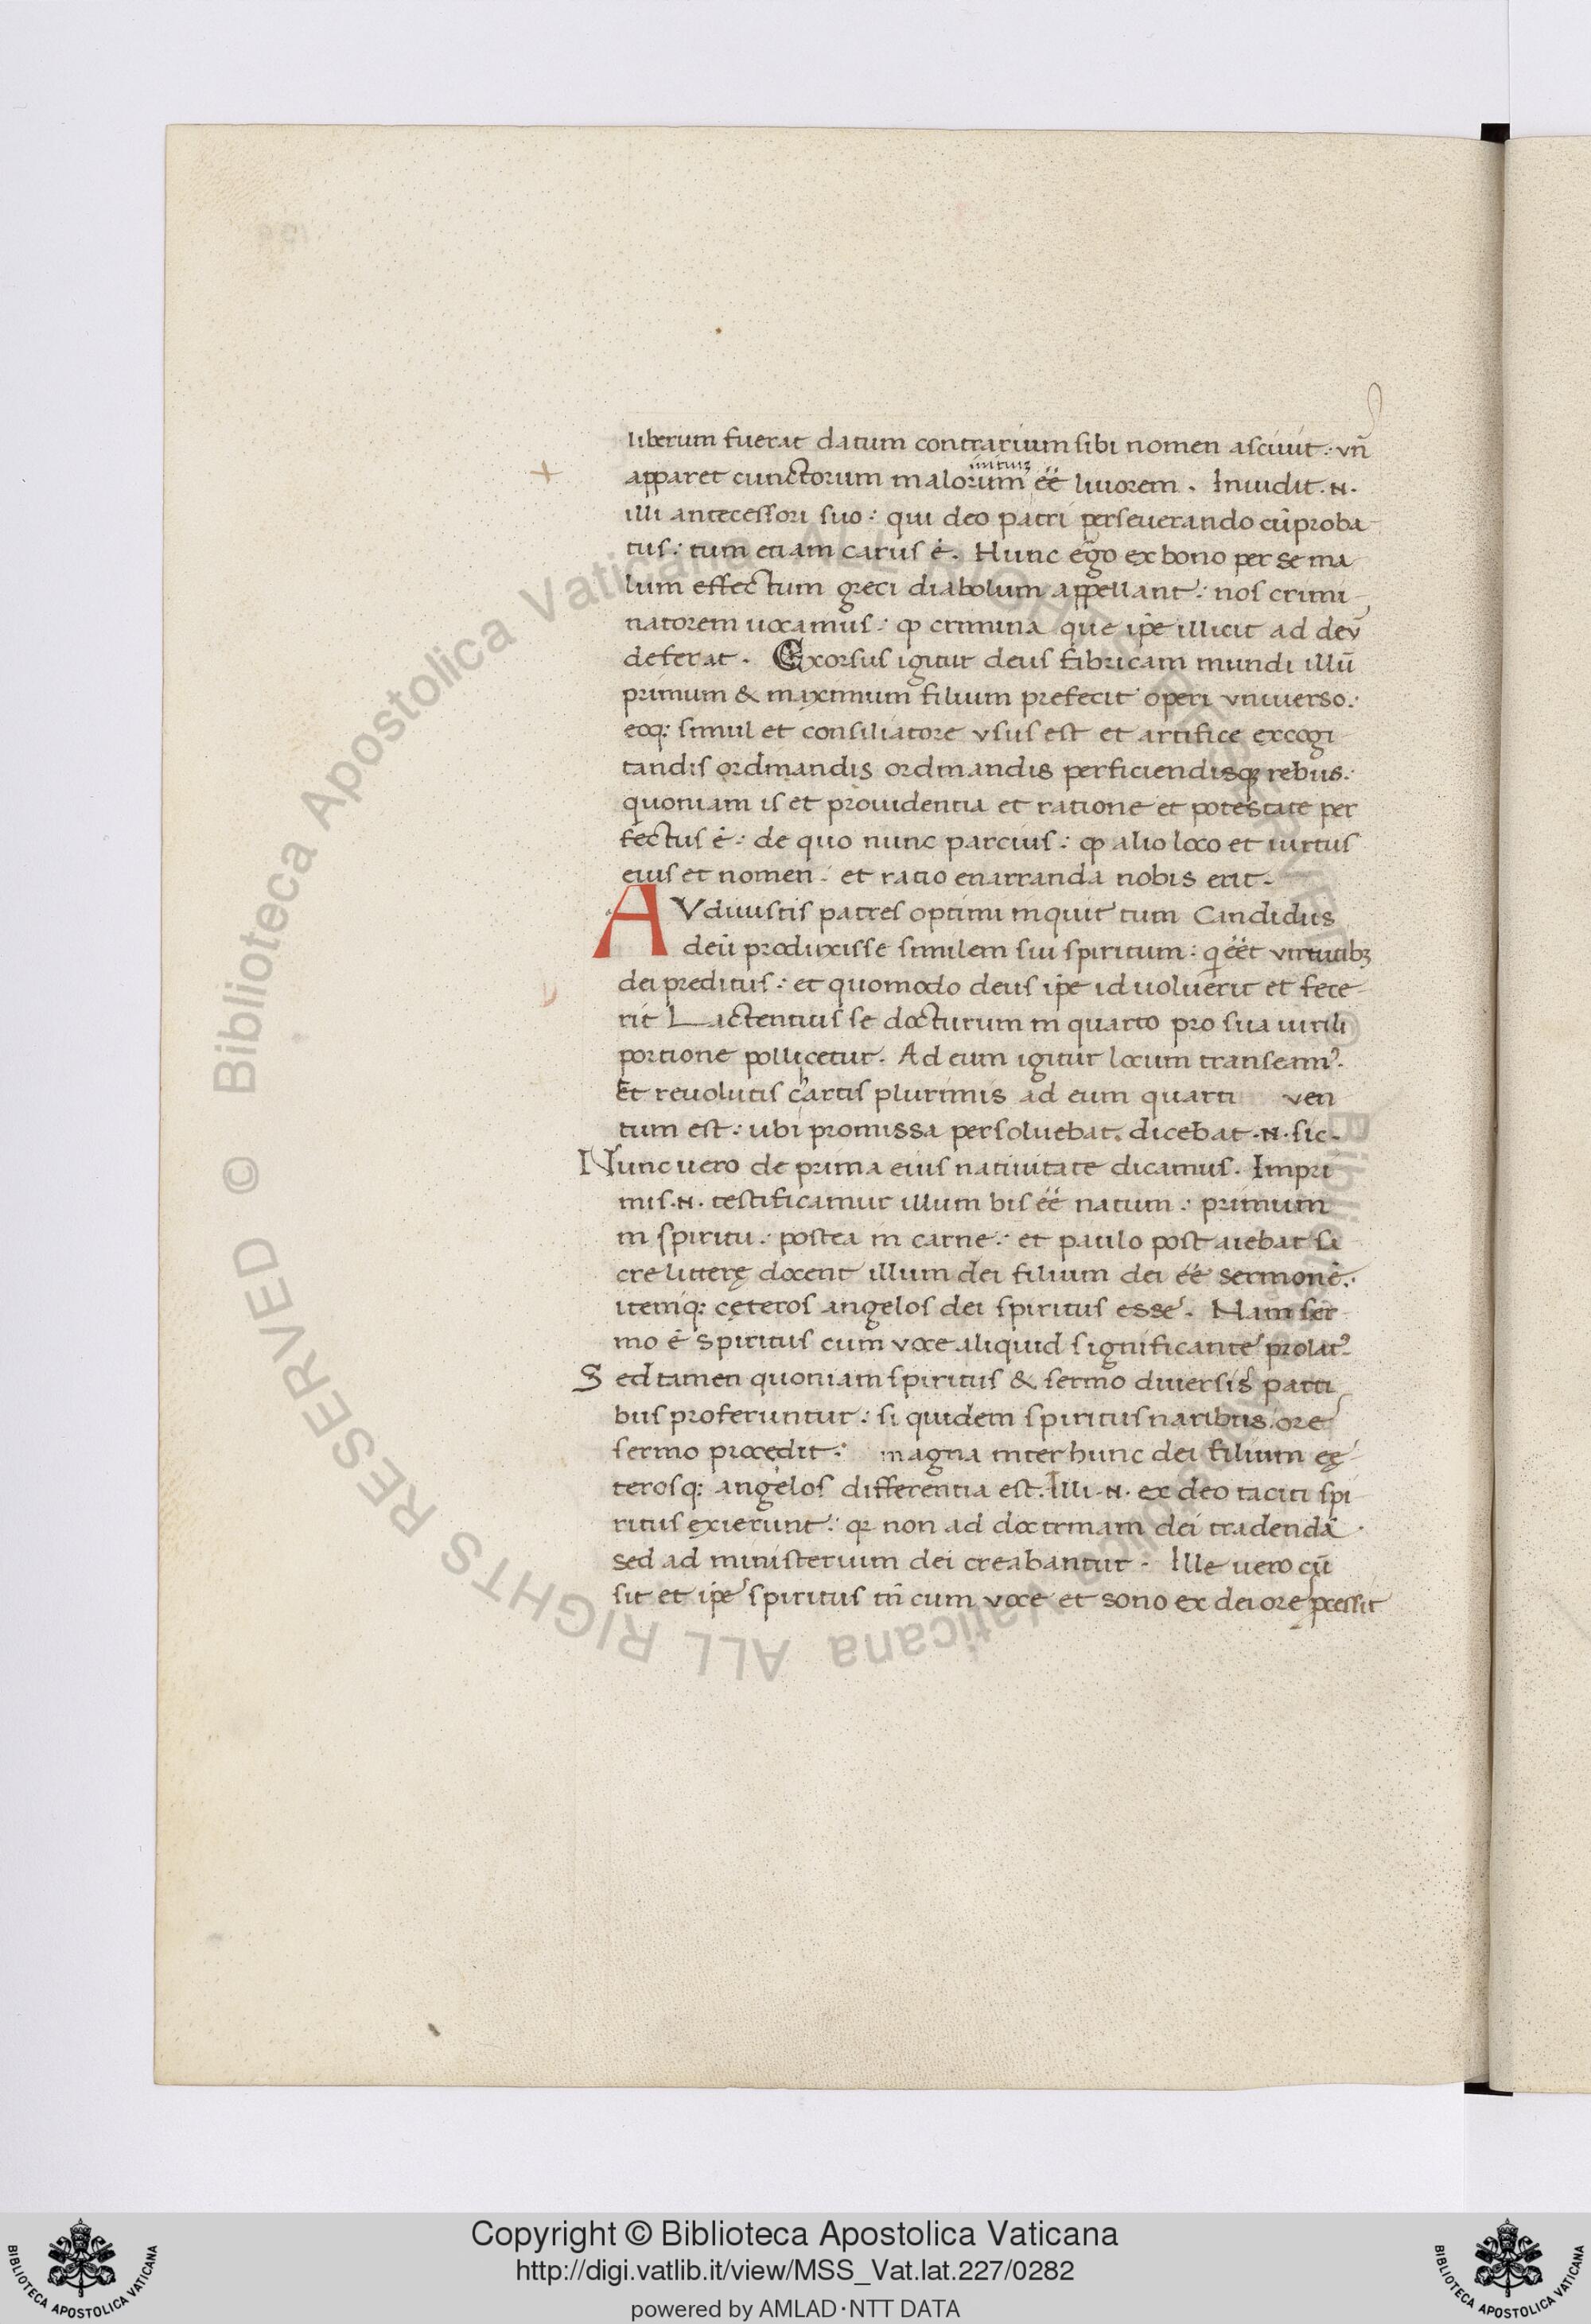 liberum fuerat datum contrarium sibi nomen asciuit : vñ
initiuȝ
apparet cunctorum malorum ẽẽ liuorem . Inuidit .N.
illi antecessori suo : qui deo patri perseuerando cũ proba
tus : tum etiam carus ẽ . Hunc ego ex bono per se ma
lum effectum greci diabolum appellant : nos crimi
natorem uocamus : ꝙ crimina que ip̃e illicit ad deũ
deferat . Exorsus igitur deus fabricam mundi illũ
primum & maximum filium prefecit operi vniuerso :
eoq: simul et consiliatore vsus est et artifice excogi
tandis ordinandis ordinandis perficiendisqȝ rebus :
quoniam is et prouidentia et ratione et potestate per
fectus ẽ : de quo nunc parcius : ꝙ alio loco et uirtus
eius et nomen : et ratio enarranda nobis erit .
AVdiuistis patres optimi inquit tum Candidus
deũ produxisse similem sui spiritum : q ẽẽt virtutibȝ
dei preditus : et quomodo deus ip̃e id uoluerit et fece
rit Lactentius se docturum in quarto pro sua uirili
portione pollicetur . Ad eum igitur locum transeamꝰ .
Et reuolutis chartis plurimis ad eum quarti ven
tum est : ubi promissa persoluebat . dicebat .N. sic .
Nunc uero de prima eius natiuitate dicamus . Impri
mis .N. testificamur illum bis ẽẽ natum : primum
in spiritu : postea in carne : et paulo post aiebat sa
cre litterę docent illum dei filium dei ẽẽ sermonẽ :
itemq: cęteros angelos dei spiritus esse . Nam ser
mo ẽ spiritus cum voce aliquid significante prolatꝰ
Sed tamen quoniam spiritus & sermo diuersis parti
bus proferuntur : si quidem spiritus naribus . ore
sermo procedit : magna inter hunc dei filium cę
terosq: angelos differentia est . Illi .N. ex deo taciti spi
ritus exierunt : qꝛ non ad doctrinam dei tradendã .
sed ad ministerium dei creabantur . Ille uero cũ
sit et ip̃e spiritus tñ cum voce et sono ex dei ore ꝓcessit
© Biblioteca Apostolica Vaticana ALL RIGHTS RESERVED © Biblioteca Apostolica Vaticana ALL RIGHTS RESERVED
Copyright © Biblioteca Apostolica Vaticana
http://digi.vatlib.it/view/MSS_Vat.lat.227/0282
powered by AMLAD·NTT DATA
BIBLIOTECA APOSTOLICA VATICANA
BIBLIOTECA APOSTOLICA VATICANA